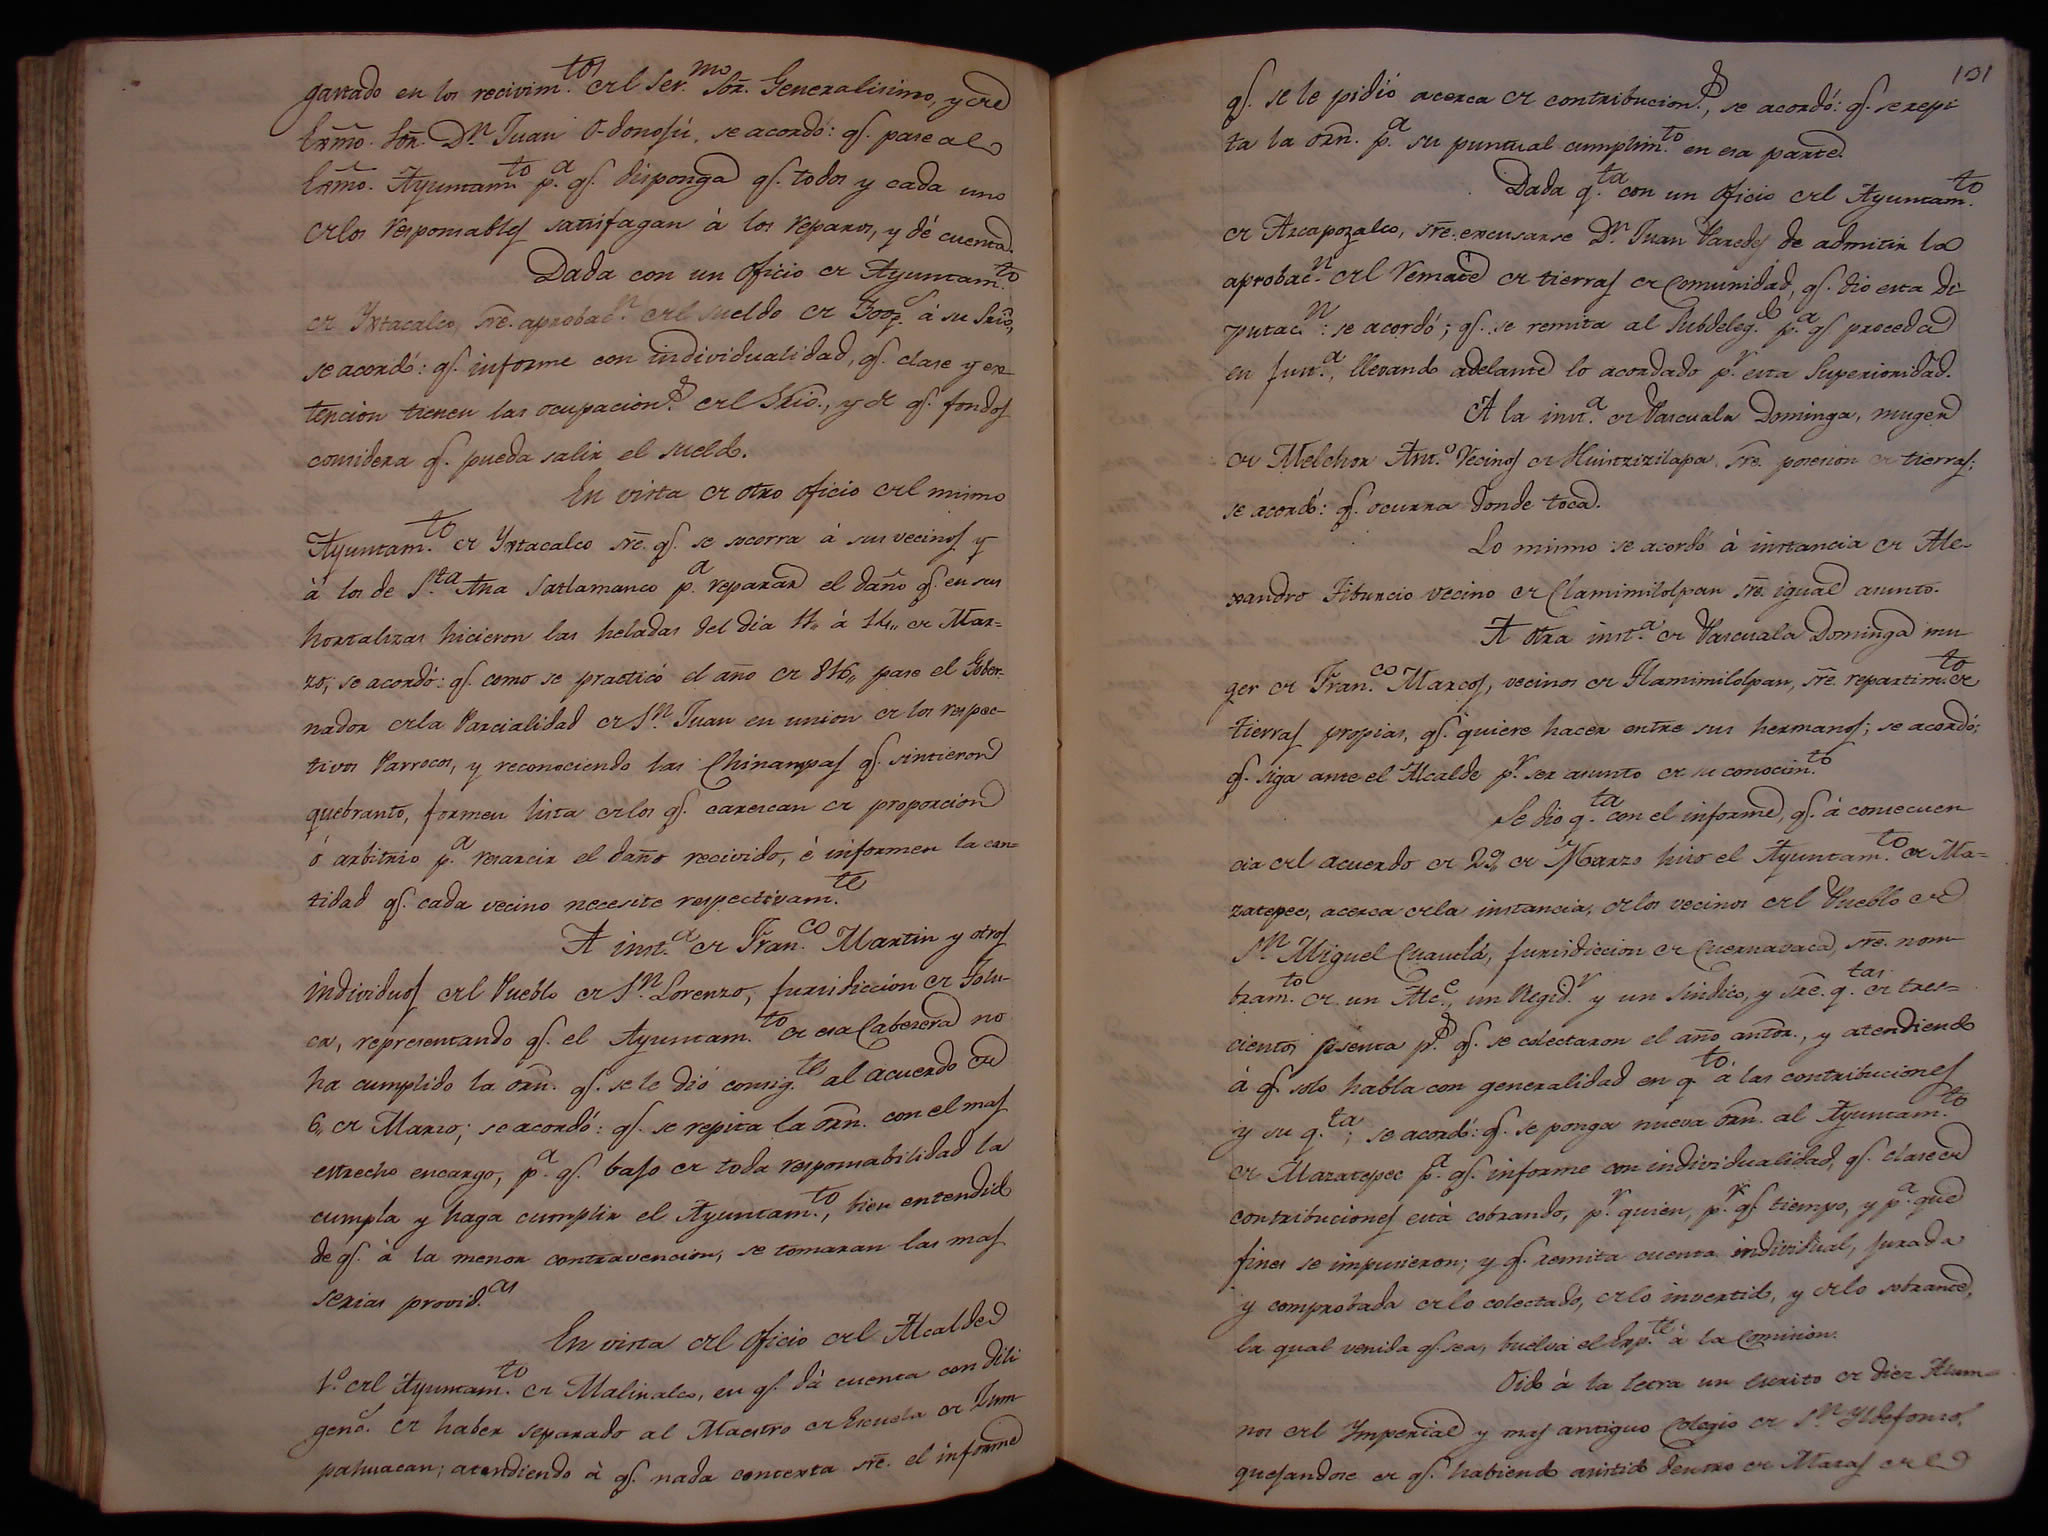 gastado en los recivim.tos del Ser.mo Sōr. Generalisimo, y del
Exmo. Sōr. D.n Juan O-donojú, se acordó: q.e pase al
Exmo. Ayuntam.to p.a q.e disponga q.e todos y cada uno
de los responsables satisfagan à los reparos, y dé cuenta.
Dada con un oficio de Ayuntam.to
de Yxtacalco, sre. aprobac.n del sueldo de 300p.s à su Srio,
se acordó: q.e informe con individualidad, q.e clase y ex-
tencion tienen las ocupacion.s del Srio., y de q.e fondos
considera q.e pueda salir el sueldo.
En vista de otro oficio del mismo
Ayuntam.to de Yxtacalco sre. q.e se socorra à sus vecinos y
à los de S.ta Ana Satlamanco p.a reparar el daño q.e en sus
hortalizas hicieron las heladas del dia 11,, à 14,, de Mar-
zo, se acordó: q.e como se practicó el año de 816,, pase el Gober-
nador de la Parcialidad de S.n Juan en union de los respec-
tivos Parrocos, y reconociendo las Chinampas q.e sintieron
quebranto, formen lista de los q.e carescan de proporcion
ó arbitrio p.a resarcir el daño recivido, è informen la can-
tidad q.e cada vecino necesite respectivam.te
A inst.a de Fran.co Martin y otros
individuos del Pueblo de S.n Lorenzo, jurisdiccion de Tolu-
ca, representando q.e el Ayuntam.to de esa Cabesera no
ha cumplido la orn. q.e se le dió consig.te al acuerdo de
6,, de Marzo; se acordó: q.e se repita la orn. con el mas
estrecho encargo, p.a q.e bajo de toda responsabilidad la
cumpla y haga cumplir el Ayuntam.to, bien entendido
de q.e à la menor contravencion, se tomaran las mas
serias provid.as
En vista del oficio del Alcalde
1.o del Ayuntam.to de Malinalco, en q.e dà cuenta con dili
genc.s de haber separado al Maestro de Escuela de Jum
pahuacan; atendiendo à q.e nada contexta sre. el informe
101
q.e se le pidió acerca de contribucion.s, se acordó: q.e se repi
ta la orn. p.a su puntual cumplim.to en esa parte.
Dada q.ta con un oficio del Ayuntam.to
de Azcapozalco, sre. excusarse D.n Juan Paredes de admitir la
aprobac.n del remate de tierras de Comunidad, q.e dio esta Di
putac.n: se acordó; q.e se remita al Subdeleg.do p.a q.e proceda
en just.a, llevando adelante lo acordado p.r esta Superioridad.
A la inst.a de Pascuala Dominga, muger
de Melchor Ant.o vecinos de Huistrizilapa, sre. posesion de tierras;
se acordó: q.e ocurra donde toca.
Lo mismo se acordó à instancia de Ale-
xandro Tiburcio vecino de Clamimilolpan sre. igual asunto.
A otra inst.a de Pascuala Dominga mu
ger de Fran.co Marcos, vecinos de Tlamimilolpan, sre. repartim.to de
tierras propias, q.e quiere hacer entre sus hermanos; se acordó:
q.e siga ante el Alcalde p.r ser asunto de su conocim.to
Se dio q.ta con el informe, q.e à consecuen
cia del acuerdo de 29,, de Marzo hizo el Ayuntam.to de Ma-
zatepec, acerca de la instancia, de los vecinos del Pueblo de
S.n Miguel Cuautla, jurisdiccion de Cuernavaca, sre. nom-
bram.to de un Alc.e, un Regid.r y un Sindico, y sre. q.tas de tres-
cientos sesenta p.s q.e se colectaron el año antōr., y atendiendo
à q.e solo habla con generalidad en q.to à las contribuciones
y su q.ta; se acordó: q.e se ponga nueva orn. al Ayuntam.to
de Mazatepec p.a q.e informe con individualidad, q.e clase de
contribuciones està cobrando, p.r quien, p.r q.e tiempo, y p.a que
fines se impusieron; y q.e remita cuenta individual, jurada
y comprobada de lo colectado, de lo invertido, y de lo sobrante,
la qual venida q.e sea, buelva el Exp.te à la Comision.
Oido à la letra un escrito de diez Alum-
nos del Ymperial y mas antiguo Colegio de S.n Yldefonso,
quejandose de q.e habiendo asistido dentro de Mazas del